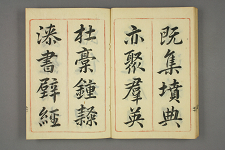 既集墳典
亦聚群英
杜稾鍾隸
漆書壁經